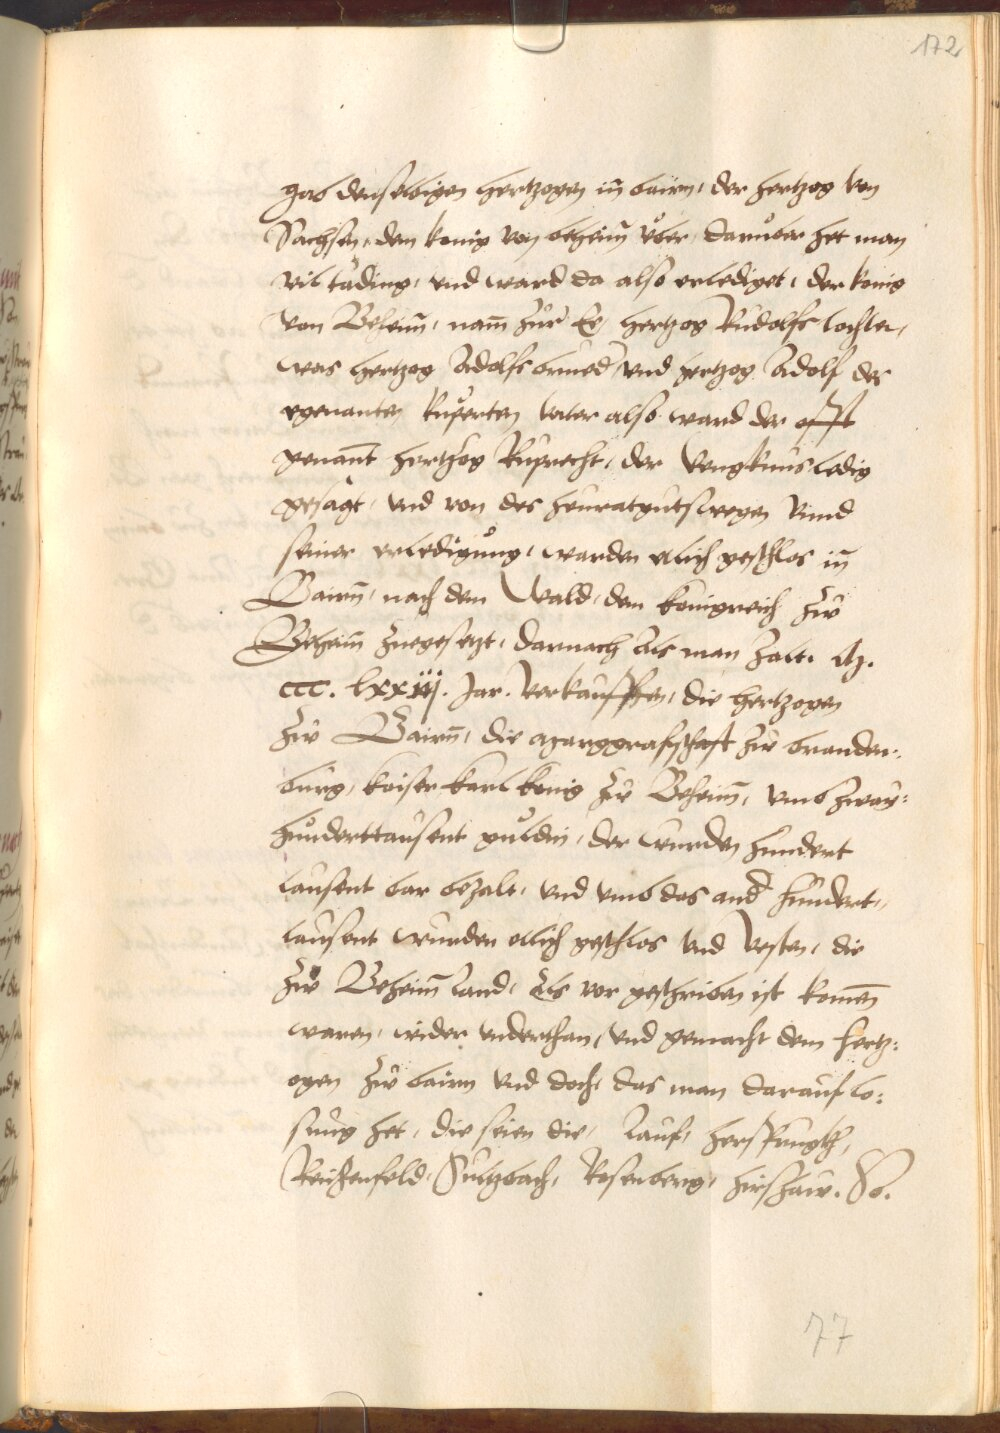 172
gab denselbigen hertzogen in bairn, der hertzog von
Sachsen, dem konig von Beheim vber, darvber het man
vil tading, vnd ward da also erlediget, der konig
von Beheim, nam zur Ee, hertzog Rudolfs tochter,
was hertzog Adolfs brued, vnd hertzog Adolf des
egenanten Ruperten vater also ward der offt
genant hertzog Ruprecht, der vengknus ledig
gesagt, vnd von des heuratgutswegen vnnd
seiner erledigung, warden etlich geschlos in
Bairn, nach dem Wald, dem konigreich zw
Beheim zuegesetzt, darnach Als man zalt. M.
CCC. lxxiij. Jar. verkaufften, die hertzogen
zw Bairn, die Marggrafschaft zw branden-
burg, kaiser karl konig zw Beheim, vmb zway-
hunderttausent guldin, der wurden hundert
tausent bar bezalt, vnd vmb das and hundert,
tausent wurden etlich geschlos vnd vesten, die
zw Beheim land, Als vor geschriben ist komen
waren, wider vnderthan, vnd gemacht dem hertz-
ogen zw bairn vnd doch, das man darauf lo-
sung het, die seien die, lauf, hersprugkh,
Reichenfeld, Sultzbach, Rosenberg, hirschaw.
77